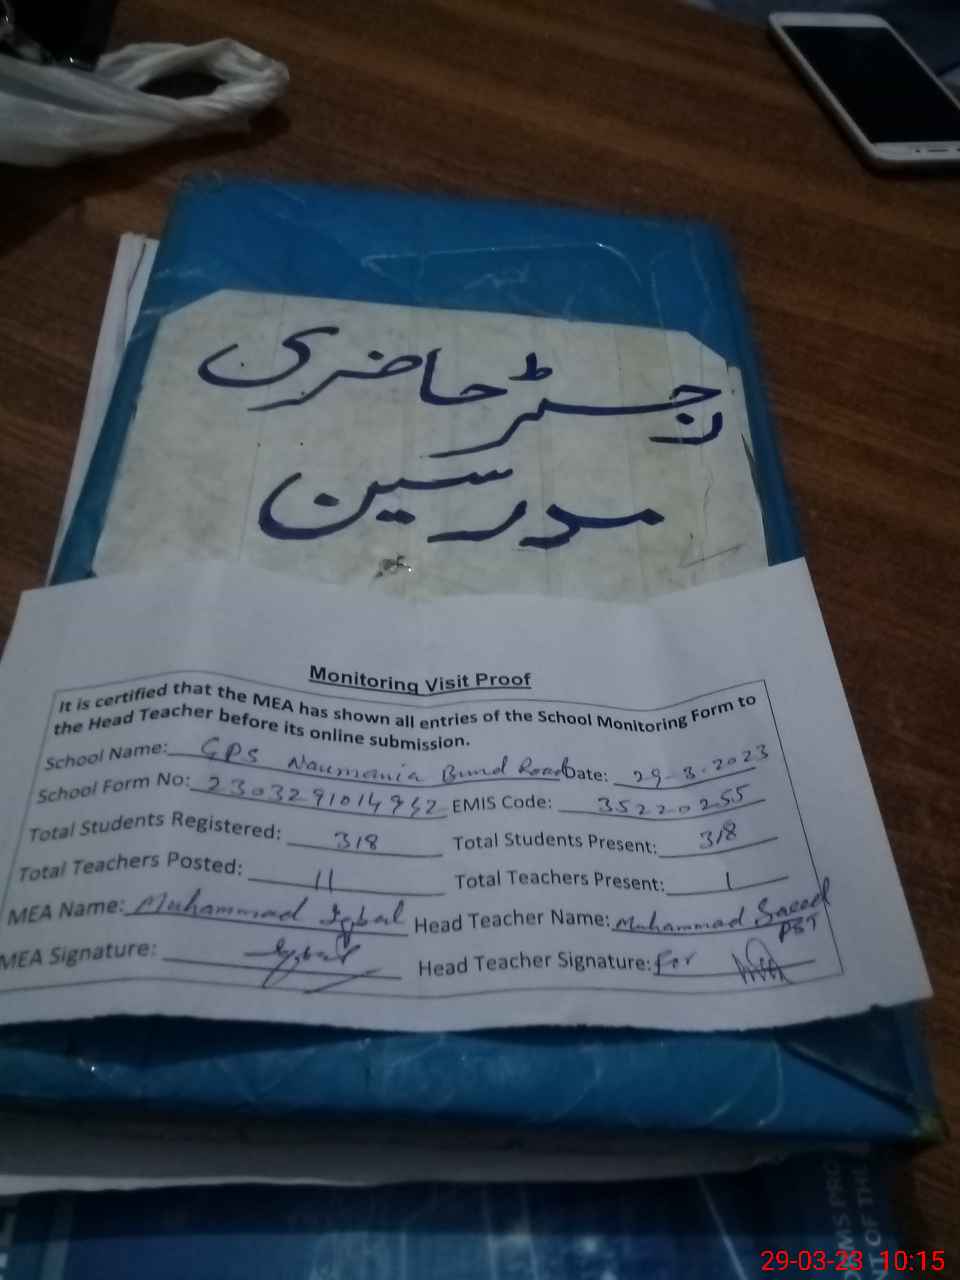 رجسٹر حاضری
مدرسین
Monitoring Visit Proof
It is certified that the MEA has shown all entries of the School Monitoring Form to
the Head Teacher before its online submission.
School Name: GPS Naumania Bund Road Date: 29-3-2023
School Form No: EMIS Code: 35220255
Total Students Registered: 318 Total Students Present: 318
Total Teachers Posted: 11 Total Teachers Present: 1
MEA Name: Muhammad Iqbal Head Teacher Name: Muhammad Saeed
PST
MEA Signature: Iqbal Head Teacher Signature: For
MS PRO
NT OF THE
29-03-23 10:15